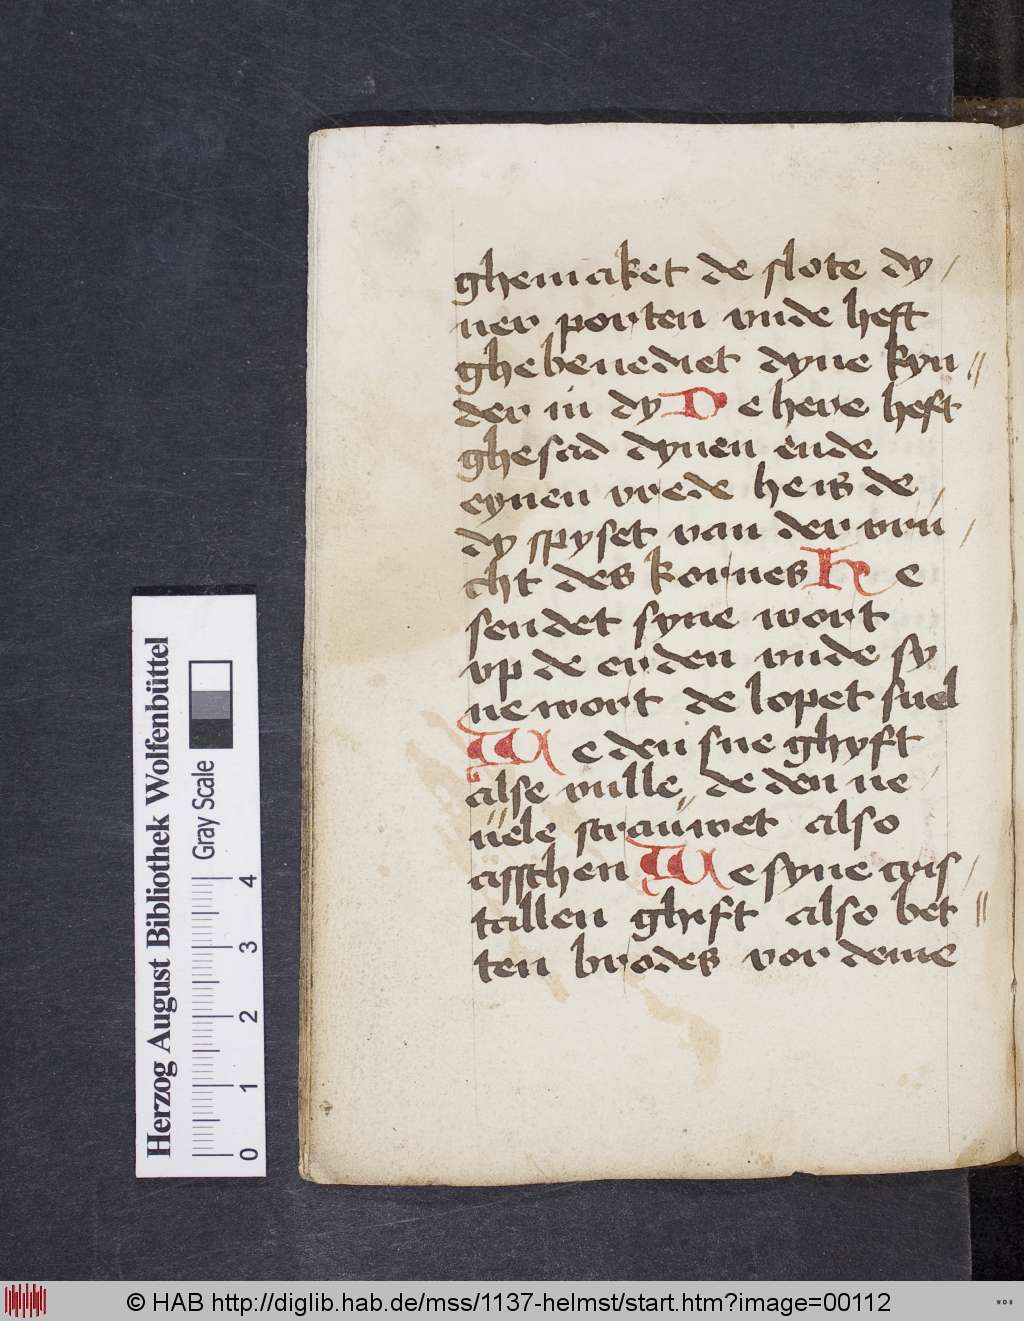 ghemaket de slote dy/
ner porten vnde heft
ghebenediet dyne kyn//
der in dy De here heft
ghesad dynen ende
eynen vrede he is de/
dy spyset van der vru/
cht des kornes He
sendet syne wort
vp de erden vnde sy
ne wort de lopet snel
We den sne ghyft
alse wulle de den ne/
uele strauwet also
asschen We syne cris/
tallen ghift also bet//
ten brodes vor deme
Herzog August Bibliothek Wolfenbüttel
Gray Scale
0 1 2 3 4
© HAB http://diglib.hab.de/mss/1137-helmst/start.htm?image=00112